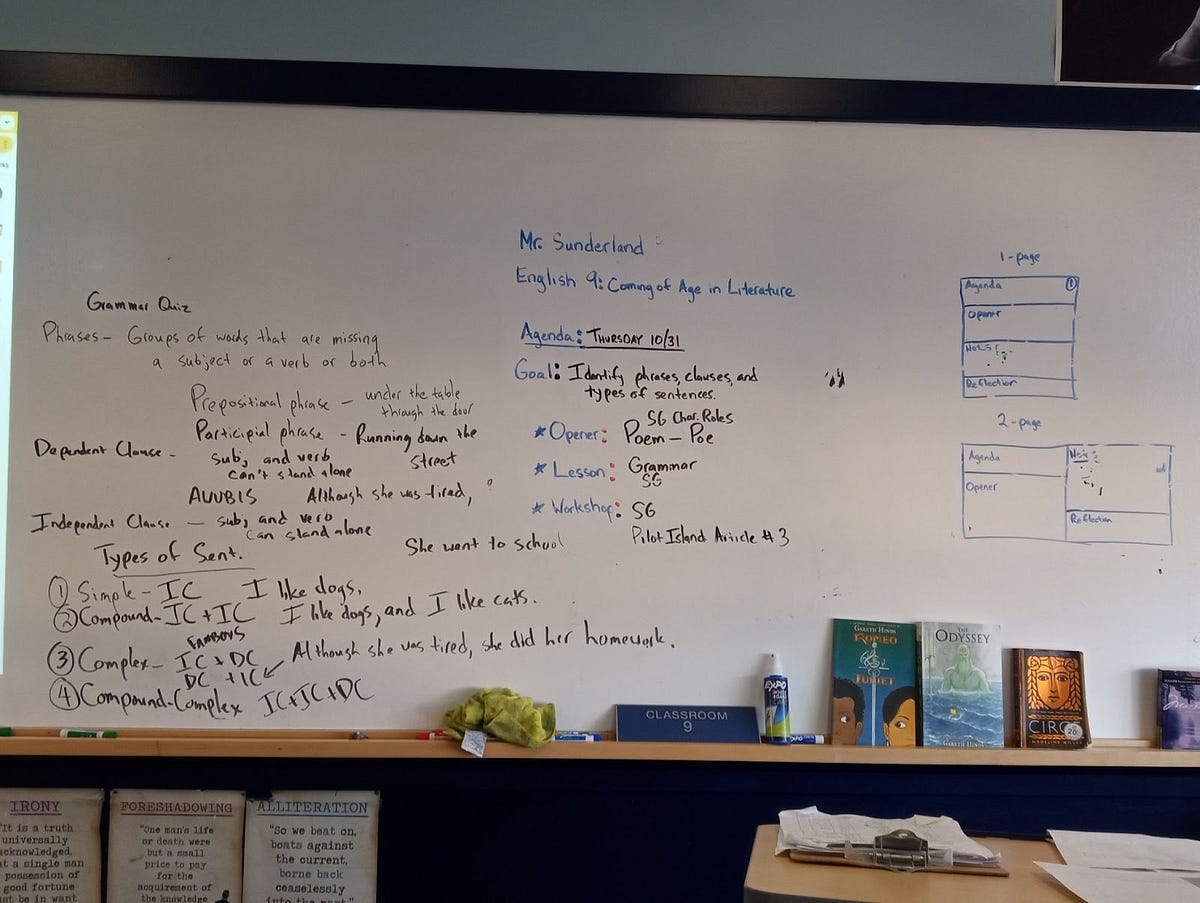 Grammar Quiz
Phrases – Groups of words that are missing
a subject or a verb or both
Prepositional phrase – under the table
through the door
Participial phrase - Running down the
street
Dependent Clause - subj and verb
can't stand alone
AUUBIS Although she was tired,
Independent Clause – subj and verb
can stand alone
She went to school
Types of Sent.
① Simple - IC I like dogs.
② Compound - IC + IC I like dogs, and I like cats.
FANBOYS
③ Complex - IC + DC
DC + IC Although she was tired, she did her homework.
④ Compound-Complex IC+IC+DC
Mr. Sunderland
English 9: Coming of Age in Literature
Agenda: THURSDAY 10/31
Goal: Identify phrases, clauses, and
types of sentences.
SG Char. Roles
★ Opener: Poem – Poe
★ Lesson: Grammar
SG
★ Workshop: SG
Pilot Island Article #3
1-page
Agenda ①
Opener
Notes
Reflection
2-page
Agenda
Opener
Notes
Reflection
EXPO
CLASSROOM
9
GARETH HINDS
ROMEO
&
JULIET
THE
ODYSSEY
GARETH HINDS
CIRC
MADELINE MILLER
IRONY
"It is a truth
universally
acknowledged,
at a single man
possession of
good fortune
st be in want
FORESHADOWING
"One man's life
or death were
but a small
price to pay
for the
acquirement of
the knowledge
ALLITERATION
"So we beat on,
boats against
the current,
borne back
ceaselessly
into the past."